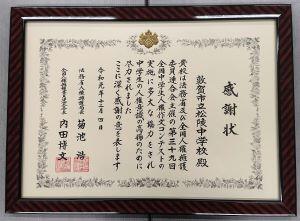 感謝状
敦賀市立松陵中学校殿
貴校は法務省及び全国人権擁護
委員連合会主催の第三十九回
全国中学生人権作文コンテストの
実施に多大な協力をされ
中学生の人権意識の高揚のために
尽力されました
ここに深く感謝の意を表します
令和元年十二月四日
法務省人権擁護局長
菊池浩
全国人権擁護委員連合会長
内田博文